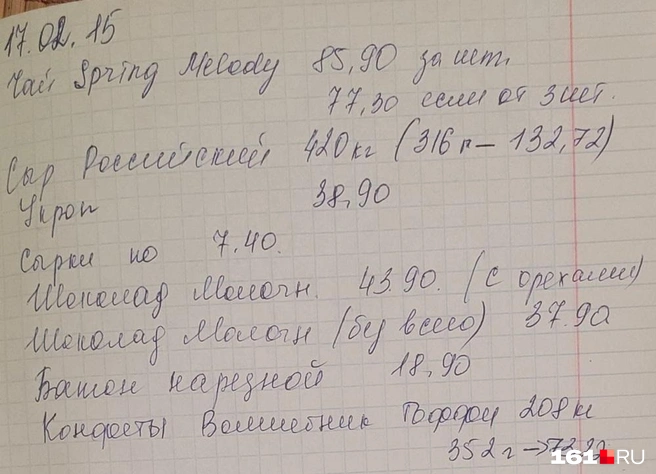 17.02.15
Чай Spring Melody 85,90 за шт.
77,30 если от 3 шт.
Сыр Российский 420 кг (316 г – 132,72)
Укроп 38,90
Сырки по 7.40.
Шоколад Молочн. 43.90. (с орехами)
Шоколад Молочн (без всего) 37.90
Батон нарезной 18,90
Конфеты Волшебник Тоффи 208 кг
352 г →
161.RU